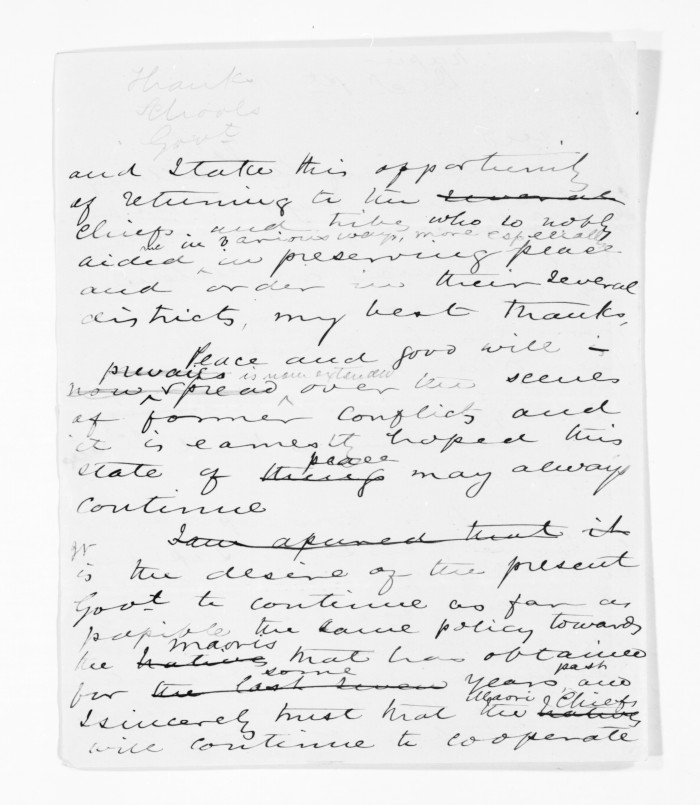 Thanks
Schools
Govt
and I take this opportunity
of returning to the several
chiefs and tribe who so nobly
in various ways, more especially
aided in preserving peace
and order in their several
districts, my best thanks,
Peace and good will
prevails is now extended
now spread over the scenes
of former conflicts and
it is earnestly hoped this
peace
state of things may always
continue
I am assured that it
It
is the desire of the present
Govt to continue as far as
possible the same policy towards
maoris
the natives that has obtained
some past
for the last seven years and
Maori Chiefs
I sincerely trust that the natives
will continue to cooperate